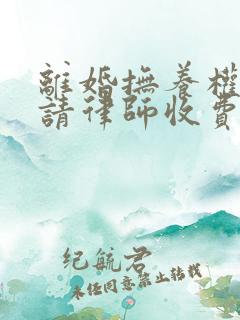 離婚撫養權
請律師收費
纪航君
未经同意禁止转载